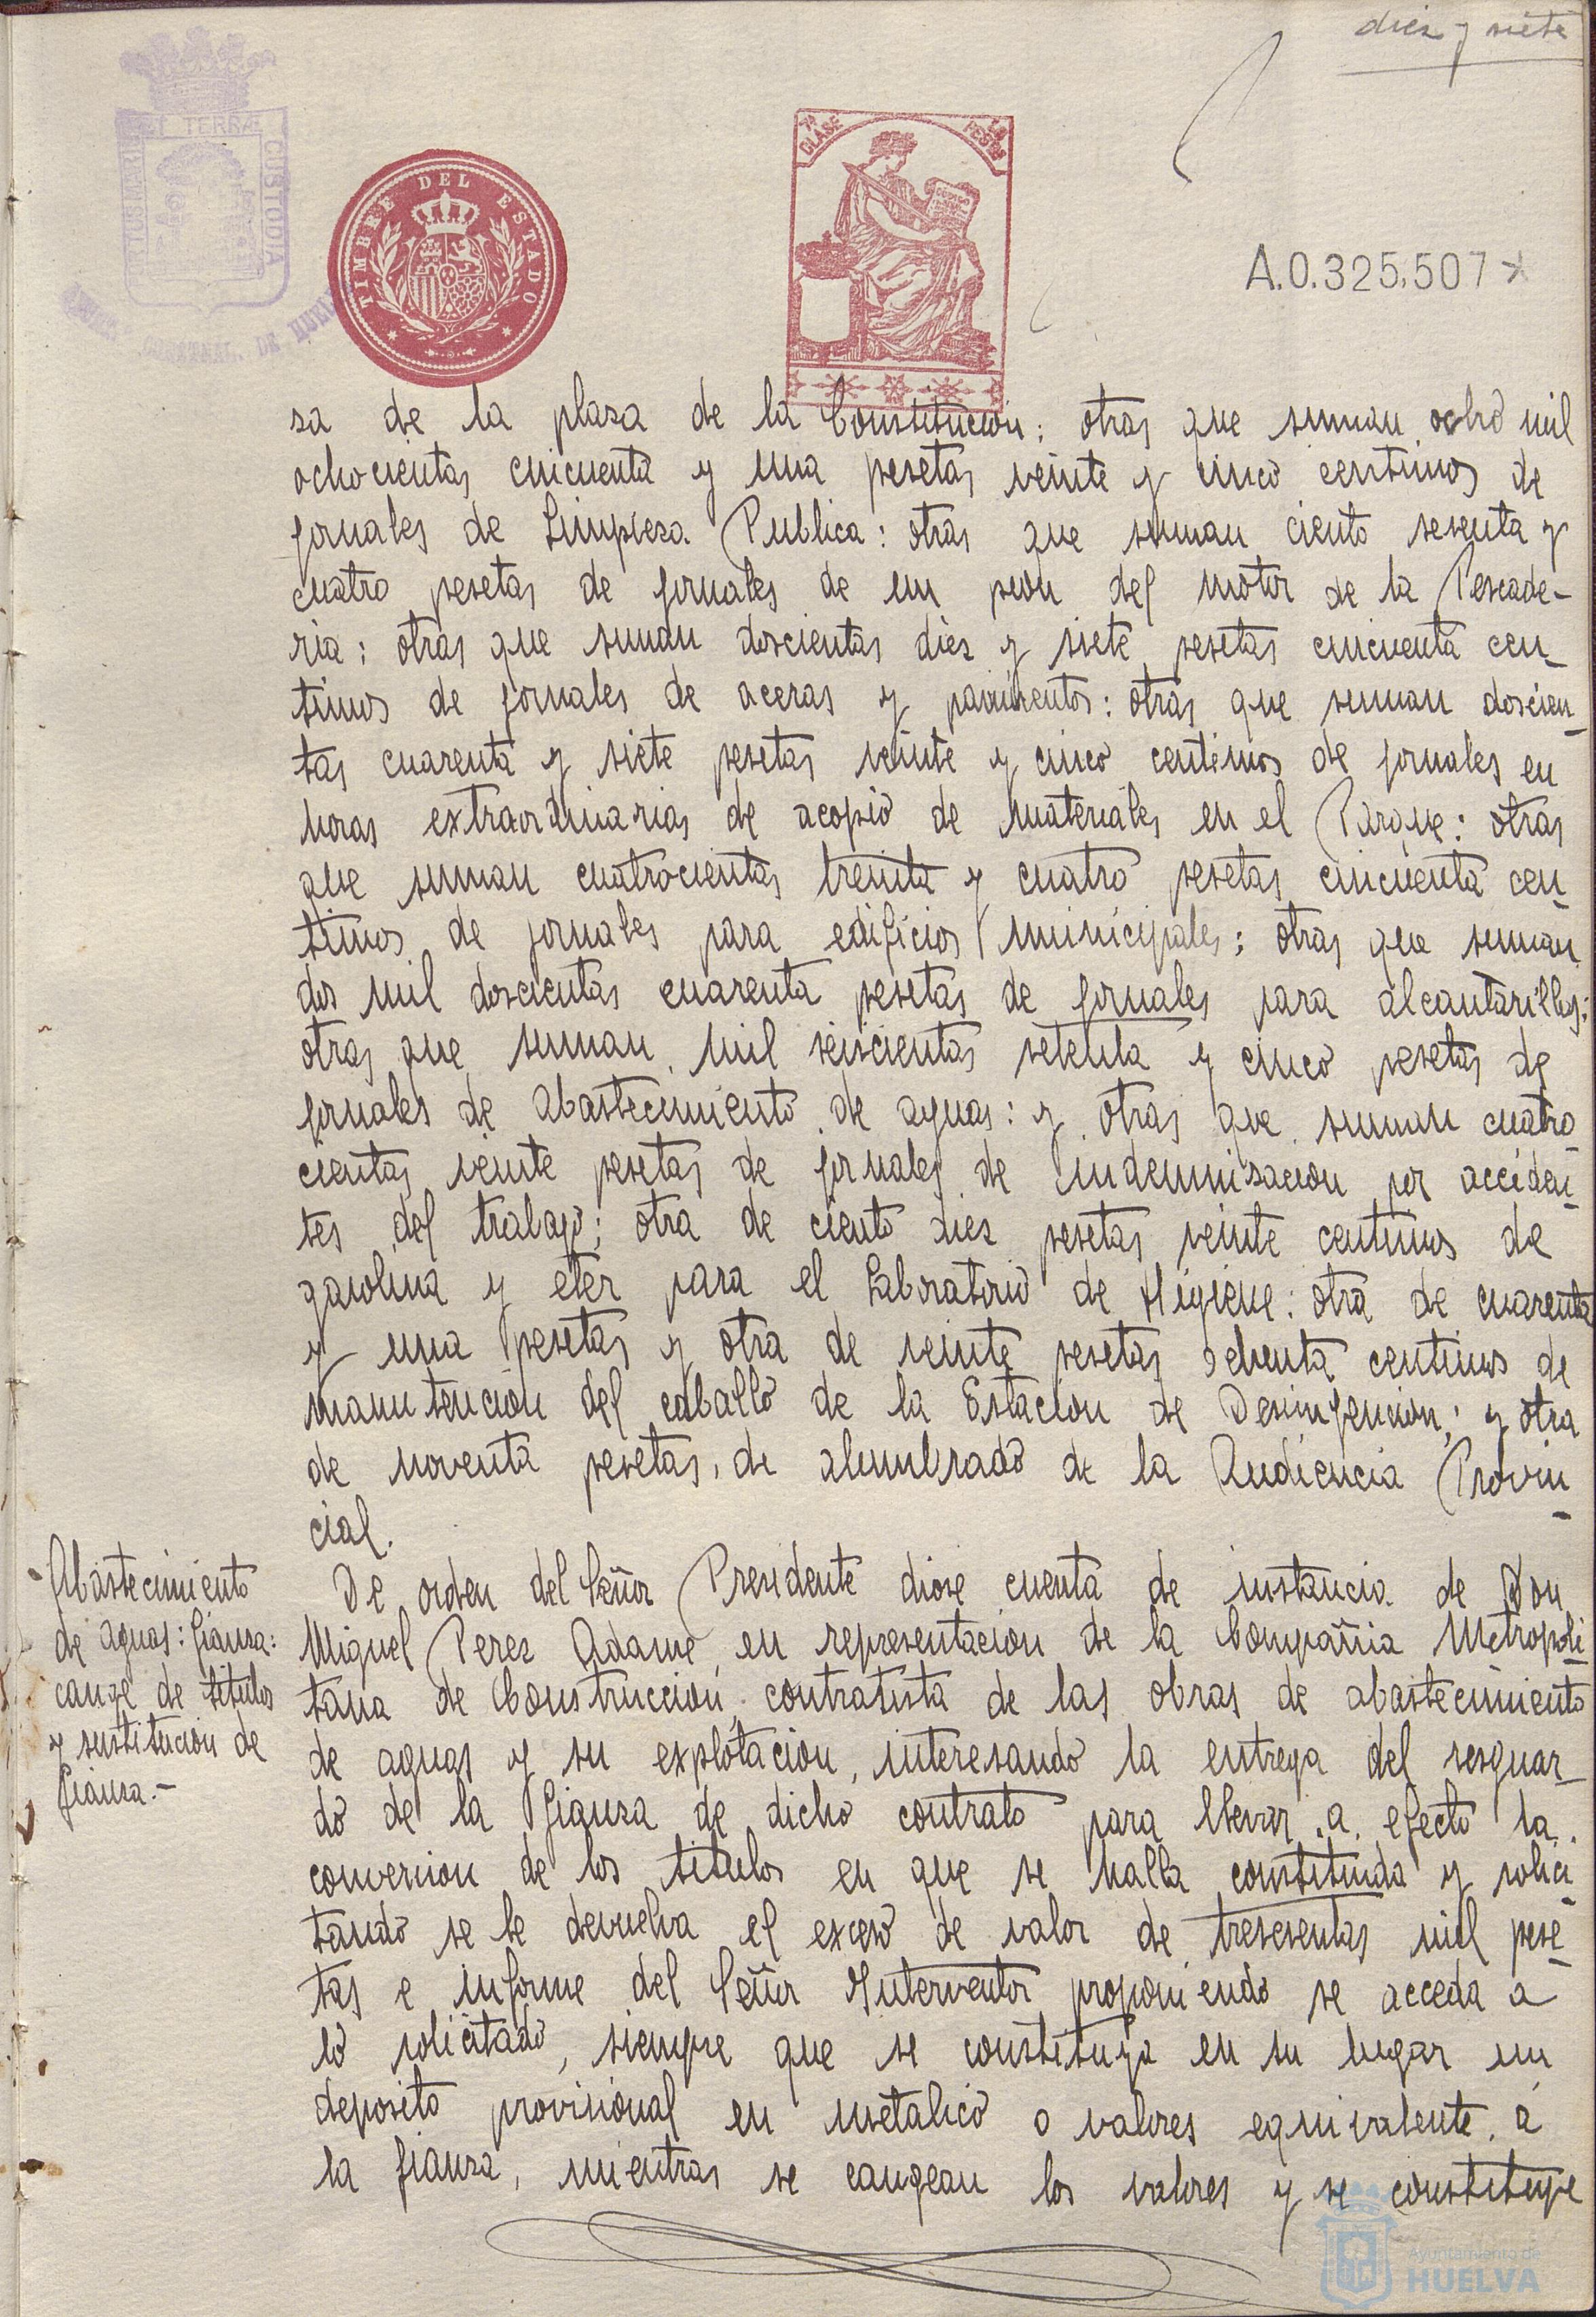 diez y siete
PORTUS MARIS ET TERRÆ CUSTODIA
TIMBRE DEL ESTADO
7ª CLASE
PESETAS
A.0.325.507 *
za de la plaza de la Constitucion: otras que suman ocho mil
ochocientas cincuenta y una pesetas veinte y cinco centimos de
jornales de Limpieza Publica: otras que suman ciento sesenta y
cuatro pesetas de jornales de un peon del motor de la Pescade-
ria: otras que suman doscientas diez y siete pesetas cincuenta cen-
timos de jornales de aceras y pavimentos: otras que suman doscien-
tas cuarenta y siete pesetas veinte y cinco centimos de jornales en
horas extraordinarias de acopio de materiales en el Parque: otras
que suman cuatrocientas treinta y cuatro pesetas cincuenta cen-
timos de jornales para edificios municipales: otras que suman
dos mil doscientas cuarenta pesetas de jornales para alcantarillas:
otras que suman mil seiscientas setenta y cinco pesetas de
jornales de abastecimiento de aguas: y otras que suman cuatro
cientas veinte pesetas de jornales de indemnizacion por acciden-
tes del trabajo; otra de ciento diez pesetas veinte centimos de
gasolina y eter para el Laboratorio de Higiene: otra de cuarenta
y una pesetas y otra de veinte pesetas ochenta centimos de
manutencion del caballo de la Estacion de Desinfeccion; y otra
de noventa pesetas, de alumbrado de la Audiencia Provin-
cial.
Abastecimiento
de aguas: fianza:
cange de titulos
y sustitucion de
fianza.-
De orden del Señor Presidente diose cuenta de instancia de Don
Miguel Perez Adame, en representacion de la Compañia Metropoli
tana de Construccion, contratista de las obras de abastecimiento
de aguas y su explotacion, interesando la entrega del resguar-
do de la fianza de dicho contrato para llevar a efecto la
conversion de los titulos en que se halla constituida y solici-
tando se le devuelva el exceso de valor de trescientas mil pese-
tas e informe del Señor Interventor proponiendo se acceda a
lo solicitado, siempre que se constituya en su lugar un
deposito provisional en metalico o valores equivalente á
la fianza, mientras se cangean los valores y se constituye
Ayuntamiento de
HUELVA